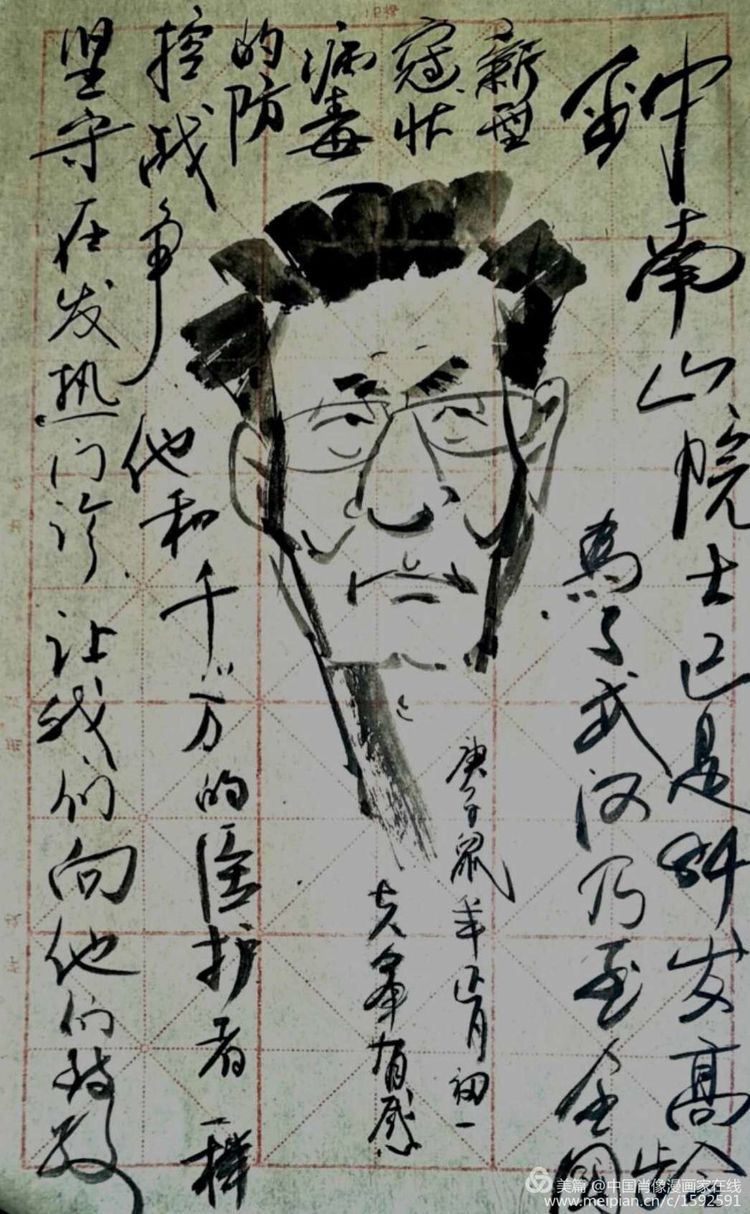 钟南山院士已是84岁高龄
为了武汉乃至全国
新型
冠状
病毒
的防
控战争 他和千万的医护者一样
坚守在发热门诊 让我们向他们致敬
庚子鼠年正月初一
有感
美篇 @中国肖像漫画家在线
www.meipian.cn/c/1592591